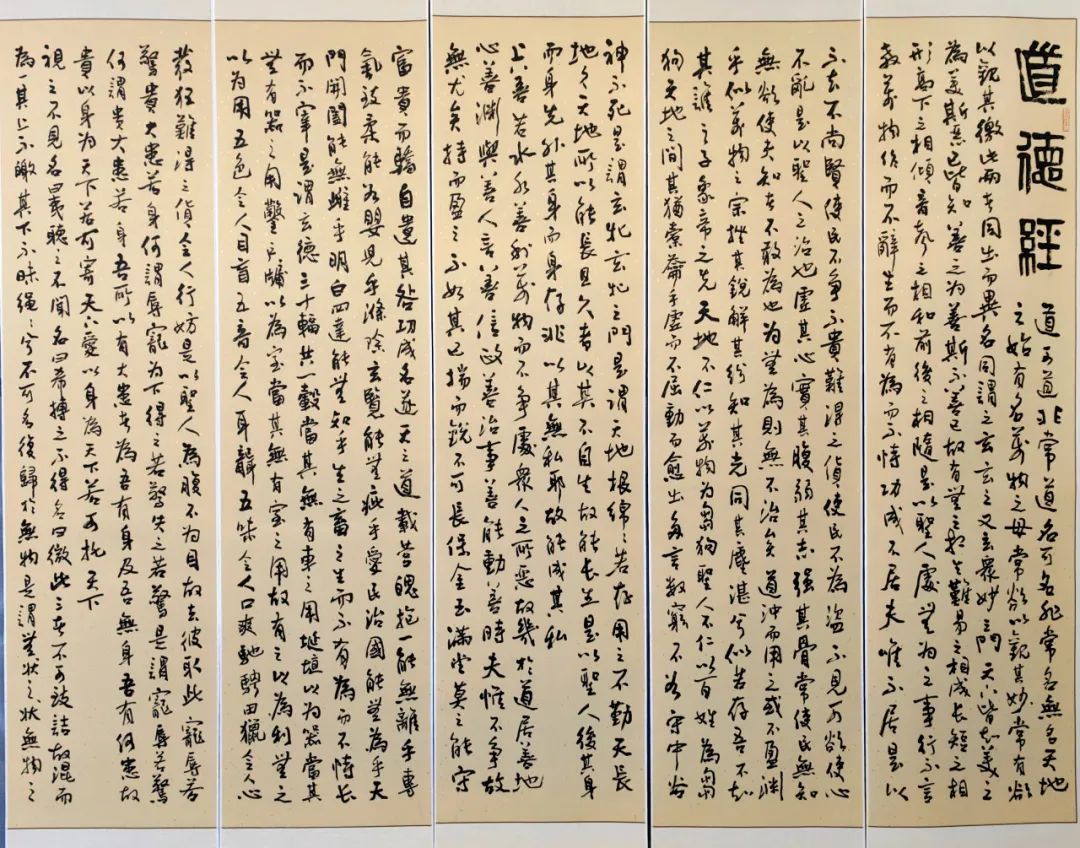 道德經
道可道非常道名可名非常名無名天地
之始有名萬物之母常欲以觀其妙常有欲
以觀其徼此兩者同出而異名同謂之玄玄之又玄衆妙之門天下皆知美之
為美斯惡已皆知善之為善斯不善已故有無之相生難易之相成長短之相
形高下之相傾音聲之相和前後之相隨是以聖人處無為之事行不言
教萬物作而不辭生而不有為而不恃功成不居夫唯不居是以
不去不尚賢使民不爭不貴難得之貨使民不為盜不見可欲使心
不亂是以聖人之治也虛其心實其腹弱其志强其骨常使民無知
無欲使夫知者不敢為也為無為則無不治矣道沖而用之或不盈淵
乎似萬物之宗挫其銳解其紛知其光同其塵湛兮似若存吾不知
其誰之子象帝之先天地不仁以萬物為芻狗聖人不仁以百姓為芻
狗天地之間其猶橐籥乎虛而不屈動而愈出多言數窮不若守中谷
神不死是謂玄牝玄牝之門是謂天地根綿綿若存用之不勤天長
地久天地所以能長且久者以其不自生故能長生是以聖人後其身
而身先外其身而身存非以其無私耶故能成其私
上善若水水善利萬物而不爭處衆人之所惡故幾於道居善地
心善淵與善人言善信政善治事善能動善時夫惟不爭故
無尤矣持而盈之不如其已揣而銳不可長保金玉滿堂莫之能守
富貴而驕自遺其咎功成名遂天之道載營魄抱一能無離乎專
氣致柔能為嬰兒乎滌除玄覽能無疵乎愛民治國能無為乎天
門開闔能無雌乎明白四達能無知乎生之畜之生而不有為而不恃長
而不宰是謂玄德三十輻共一轂當其無有車之用埏埴以為器當其
無有器之用鑿戶牖以為室當其無有室之用故有之以為利無之
以為用五色令人目盲五音令人耳聾五味令人口爽馳騁田獵令人心
發狂難得之貨令人行妨是以聖人為腹不為目故去彼取此寵辱若
驚貴大患若身何謂辱寵為下得之若驚失之若驚是謂寵辱若驚
何謂貴大患若身吾所以有大患者為吾有身及吾無身吾有何患故
貴以身為天下若可寄天下愛以身為天下若可托天下
視之不見名曰夷聽之不聞名曰希搏之不得名曰微此三者不可致詰故混而
為一其上不皦其下不昧繩繩兮不可名復歸於無物是謂無狀之狀無物之